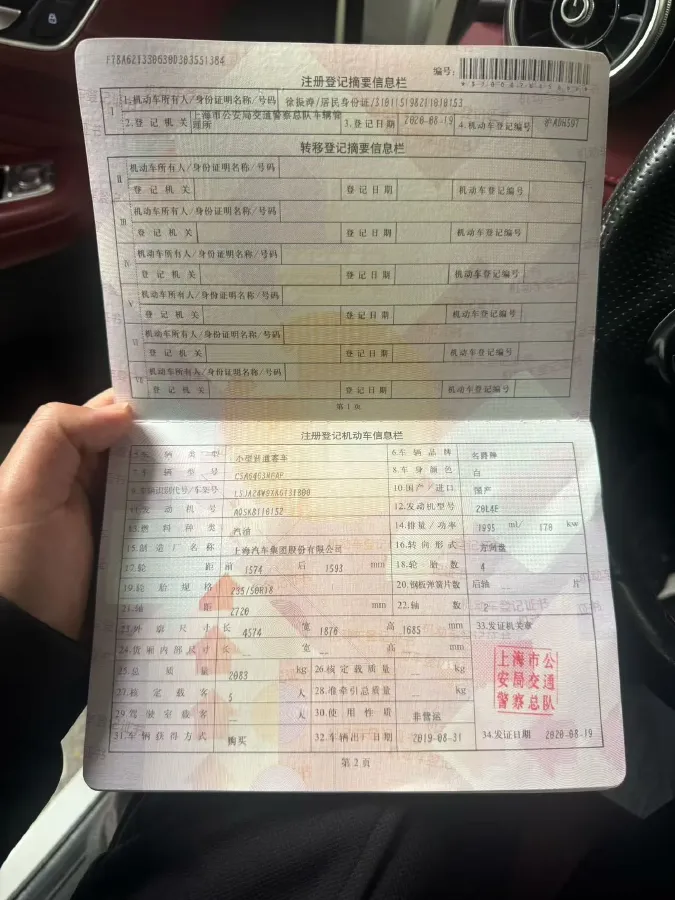 F78A621330630303551384
编号:
注册登记摘要信息栏
I 1.机动车所有人/身份证明名称/号码 /居民身份证/
2.登记机关 上海市公安局交通警察总队车辆管理所 3.登记日期 2020-08-19 4.机动车登记编号
转移登记摘要信息栏
II 机动车所有人/身份证明名称/号码
登记机关 登记日期 机动车登记编号
III 机动车所有人/身份证明名称/号码
登记机关 登记日期 机动车登记编号
IV 机动车所有人/身份证明名称/号码
登记机关 登记日期 机动车登记编号
V 机动车所有人/身份证明名称/号码
登记机关 登记日期 机动车登记编号
VI 机动车所有人/身份证明名称/号码
登记机关 登记日期 机动车登记编号
VII 机动车所有人/身份证明名称/号码
登记机关 登记日期 机动车登记编号
第1页
注册登记机动车信息栏
5.车辆类型 小型普通客车 6.车辆品牌 名爵牌
7.车辆型号 8.车身颜色 白
9.车辆识别代号/车架号 10.国产/进口 国产
11.发动机号 12.发动机型号 20L4E
13.燃料种类 汽油 14.排量/功率 1995 ml/ 170 kw
15.制造厂名称 上海汽车集团股份有限公司 16.转向形式 方向盘
17.轮距 前 1574 后 1593 mm 18.轮胎数 4
19.轮胎规格 235/50R18 20.钢板弹簧片数 后轴 — 片
21.轴距 2720 mm 22.轴数 2
23.外廓尺寸 长 4574 宽 1876 高 1685 mm 33.发证机关章
24.货厢内部尺寸 长 — 宽 — 高 — mm
25.总质量 2083 kg 26.核定载质量 — kg
27.核定载客 5 人 28.准牵引总质量 — kg
29.驾驶室载客 — 人 30.使用性质 非营运
31.车辆获得方式 购买 32.车辆出厂日期 2019-08-31 34.发证日期 2020-08-19
上海市公
安局交通
警察总队
第2页